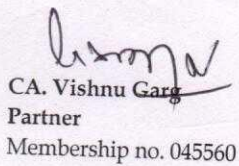 CA. Vishnu Garg
Partner
Membership no. 045560